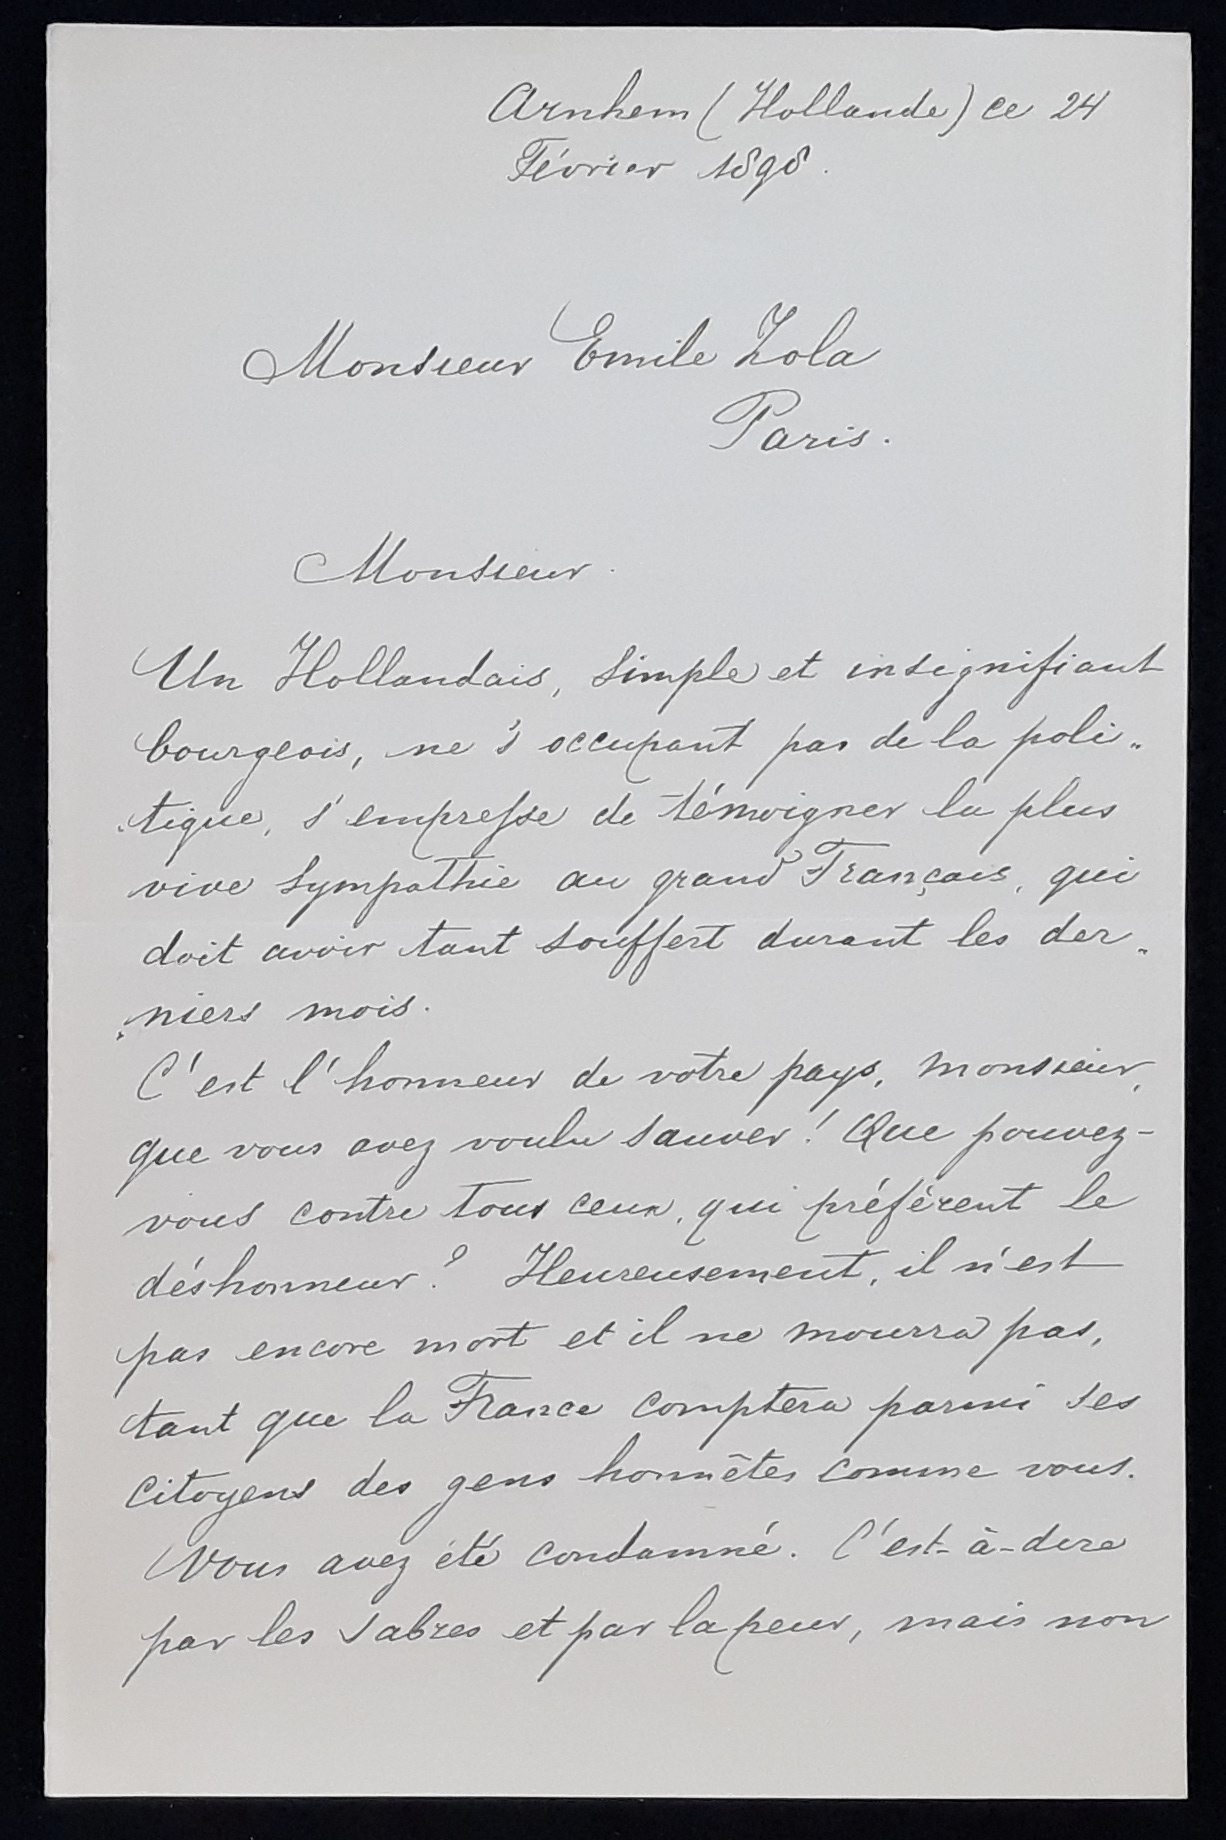 Arnhem (Hollande) ce 24
Février 1898.
Monsieur Emile Zola
Paris.
Monsieur.
Un Hollandais, simple et insignifiant
bourgeois, ne s'occupant pas de la poli„
„tique, s'empresse de témoigner la plus
vive sympathie au grand Français, qui
doit avoir tant souffert durant les der„
„niers mois.
C'est l'honneur de votre pays, monsieur,
que vous avez voulu sauver! Que pouvez-
vous contre tous ceux, qui préfèrent le
déshonneur? Heureusement, il n'est
pas encore mort et il ne mourra pas,
tant que la France comptera parmi ses
citoyens des gens honnêtes comme vous.
Vous avez été condamné. C'est-à-dire
par les sabres et par la peur, mais non